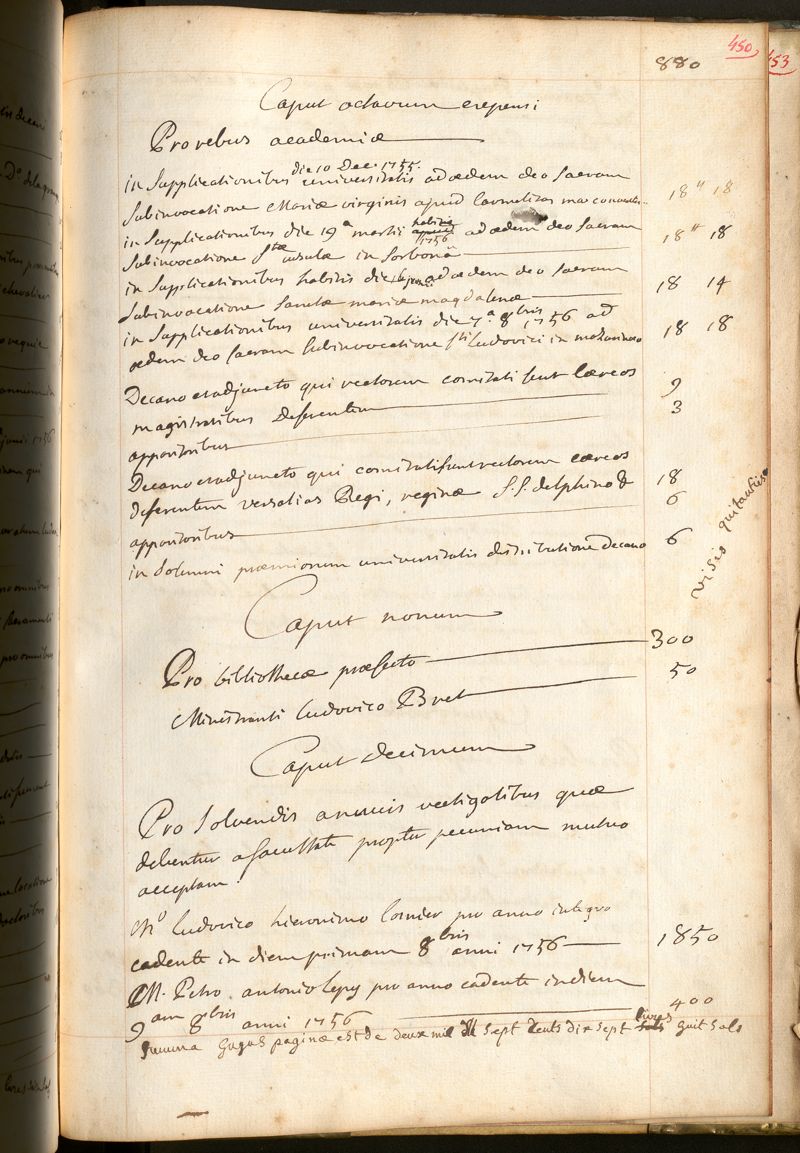 450
453
880
Caput octavum expensi
Pro rebus academiæ
die 10 Dec. 1755.
in Supplicationibus universitatis ad ædem deo sacram
Sub invocatione Mariæ virginis apud Carmelitas 18ᴴ 18
in Supplicationibus die 19ᵃ martii habitis 1756 ad ædem deo sacram
Sub invocatione Sᵗᵃᵉ ursulæ in Sorbonâ 18ᴴ 18
in Supplicationibus habitis die ad ædem deo sacram
Sub invocatione Sanctæ mariæ magdalenæ 18 14
in Supplicationibus universitatis die 7ᵃ 8ᵇʳⁱˢ 1756 ad
ædem deo sacram Sub invocatione Sᵗⁱ Ludovici in mazarinæo 18 18
Decano et adjuncto qui rectorem comitati sunt cæreos
magistratibus deferentem 9
apparitoribus 3
Decano et adjuncto qui comitati sunt rectorem cæreos
deferentem versalias Regi, reginæ S.S. delphino & 18
apparitoribus 6
in Solemni præmiorum universitatis distributione decano 6
visis quitansiis
Caput nonum
Pro bibliothecæ præfecto 300
Ministranti Ludovico Bret 50
Caput decimum
Pro Solvendis annuis vectigalibus quæ
debentur a facultate propter pecuniam mutuo
acceptam.
Mᵒ Ludovico hieronimo Cornier pro anno integro
cadente in diem primam 8ᵇʳⁱˢ anni 1756 1850
M. Petro antonio Lepy pro anno cadente in diem
9ᵃᵐ 8ᵇʳⁱˢ anni 1756 400
Summa hujus paginæ est de deux mil Sept cents dix sept livres huit sols